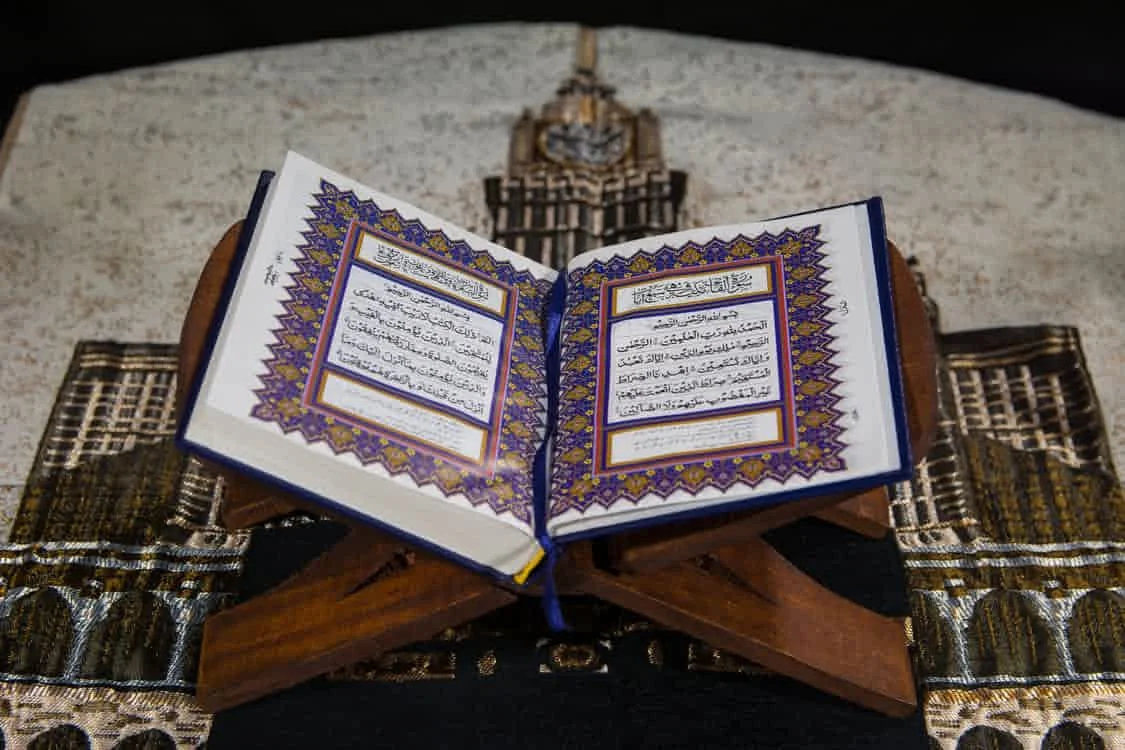 سُورَةُ الْفَاتِحَةِ مَكِّيَّةٌ وَهِيَ سَبْعُ آيَاتٍ
بِسْمِ اللهِ الرَّحْمٰنِ الرَّحِيمِ
الْحَمْدُ لِلّٰهِ رَبِّ الْعٰلَمِينَ ۞ الرَّحْمٰنِ
الرَّحِيمِ ۞ مٰلِكِ يَوْمِ الدِّينِ ۞ إِيَّاكَ نَعْبُدُ
وَإِيَّاكَ نَسْتَعِينُ ۞ اهْدِنَا الصِّرَاطَ
الْمُسْتَقِيمَ ۞ صِرَاطَ الَّذِينَ أَنْعَمْتَ عَلَيْهِمْ
غَيْرِ الْمَغْضُوبِ عَلَيْهِمْ وَلَا الضَّالِّينَ
بِسْمِ اللهِ الرَّحْمٰنِ الرَّحِيمِ
الم ۞ ذٰلِكَ الْكِتٰبُ لَا رَيْبَ فِيهِ هُدًى
لِلْمُتَّقِينَ ۞ الَّذِينَ يُؤْمِنُونَ بِالْغَيْبِ
وَيُقِيمُونَ الصَّلٰوةَ وَمِمَّا رَزَقْنٰهُمْ يُنْفِقُونَ ۞
وَالَّذِينَ يُؤْمِنُونَ بِمَا أُنْزِلَ إِلَيْكَ وَمَا
أُنْزِلَ مِنْ قَبْلِكَ وَبِالْآخِرَةِ هُمْ يُوقِنُونَ ۞